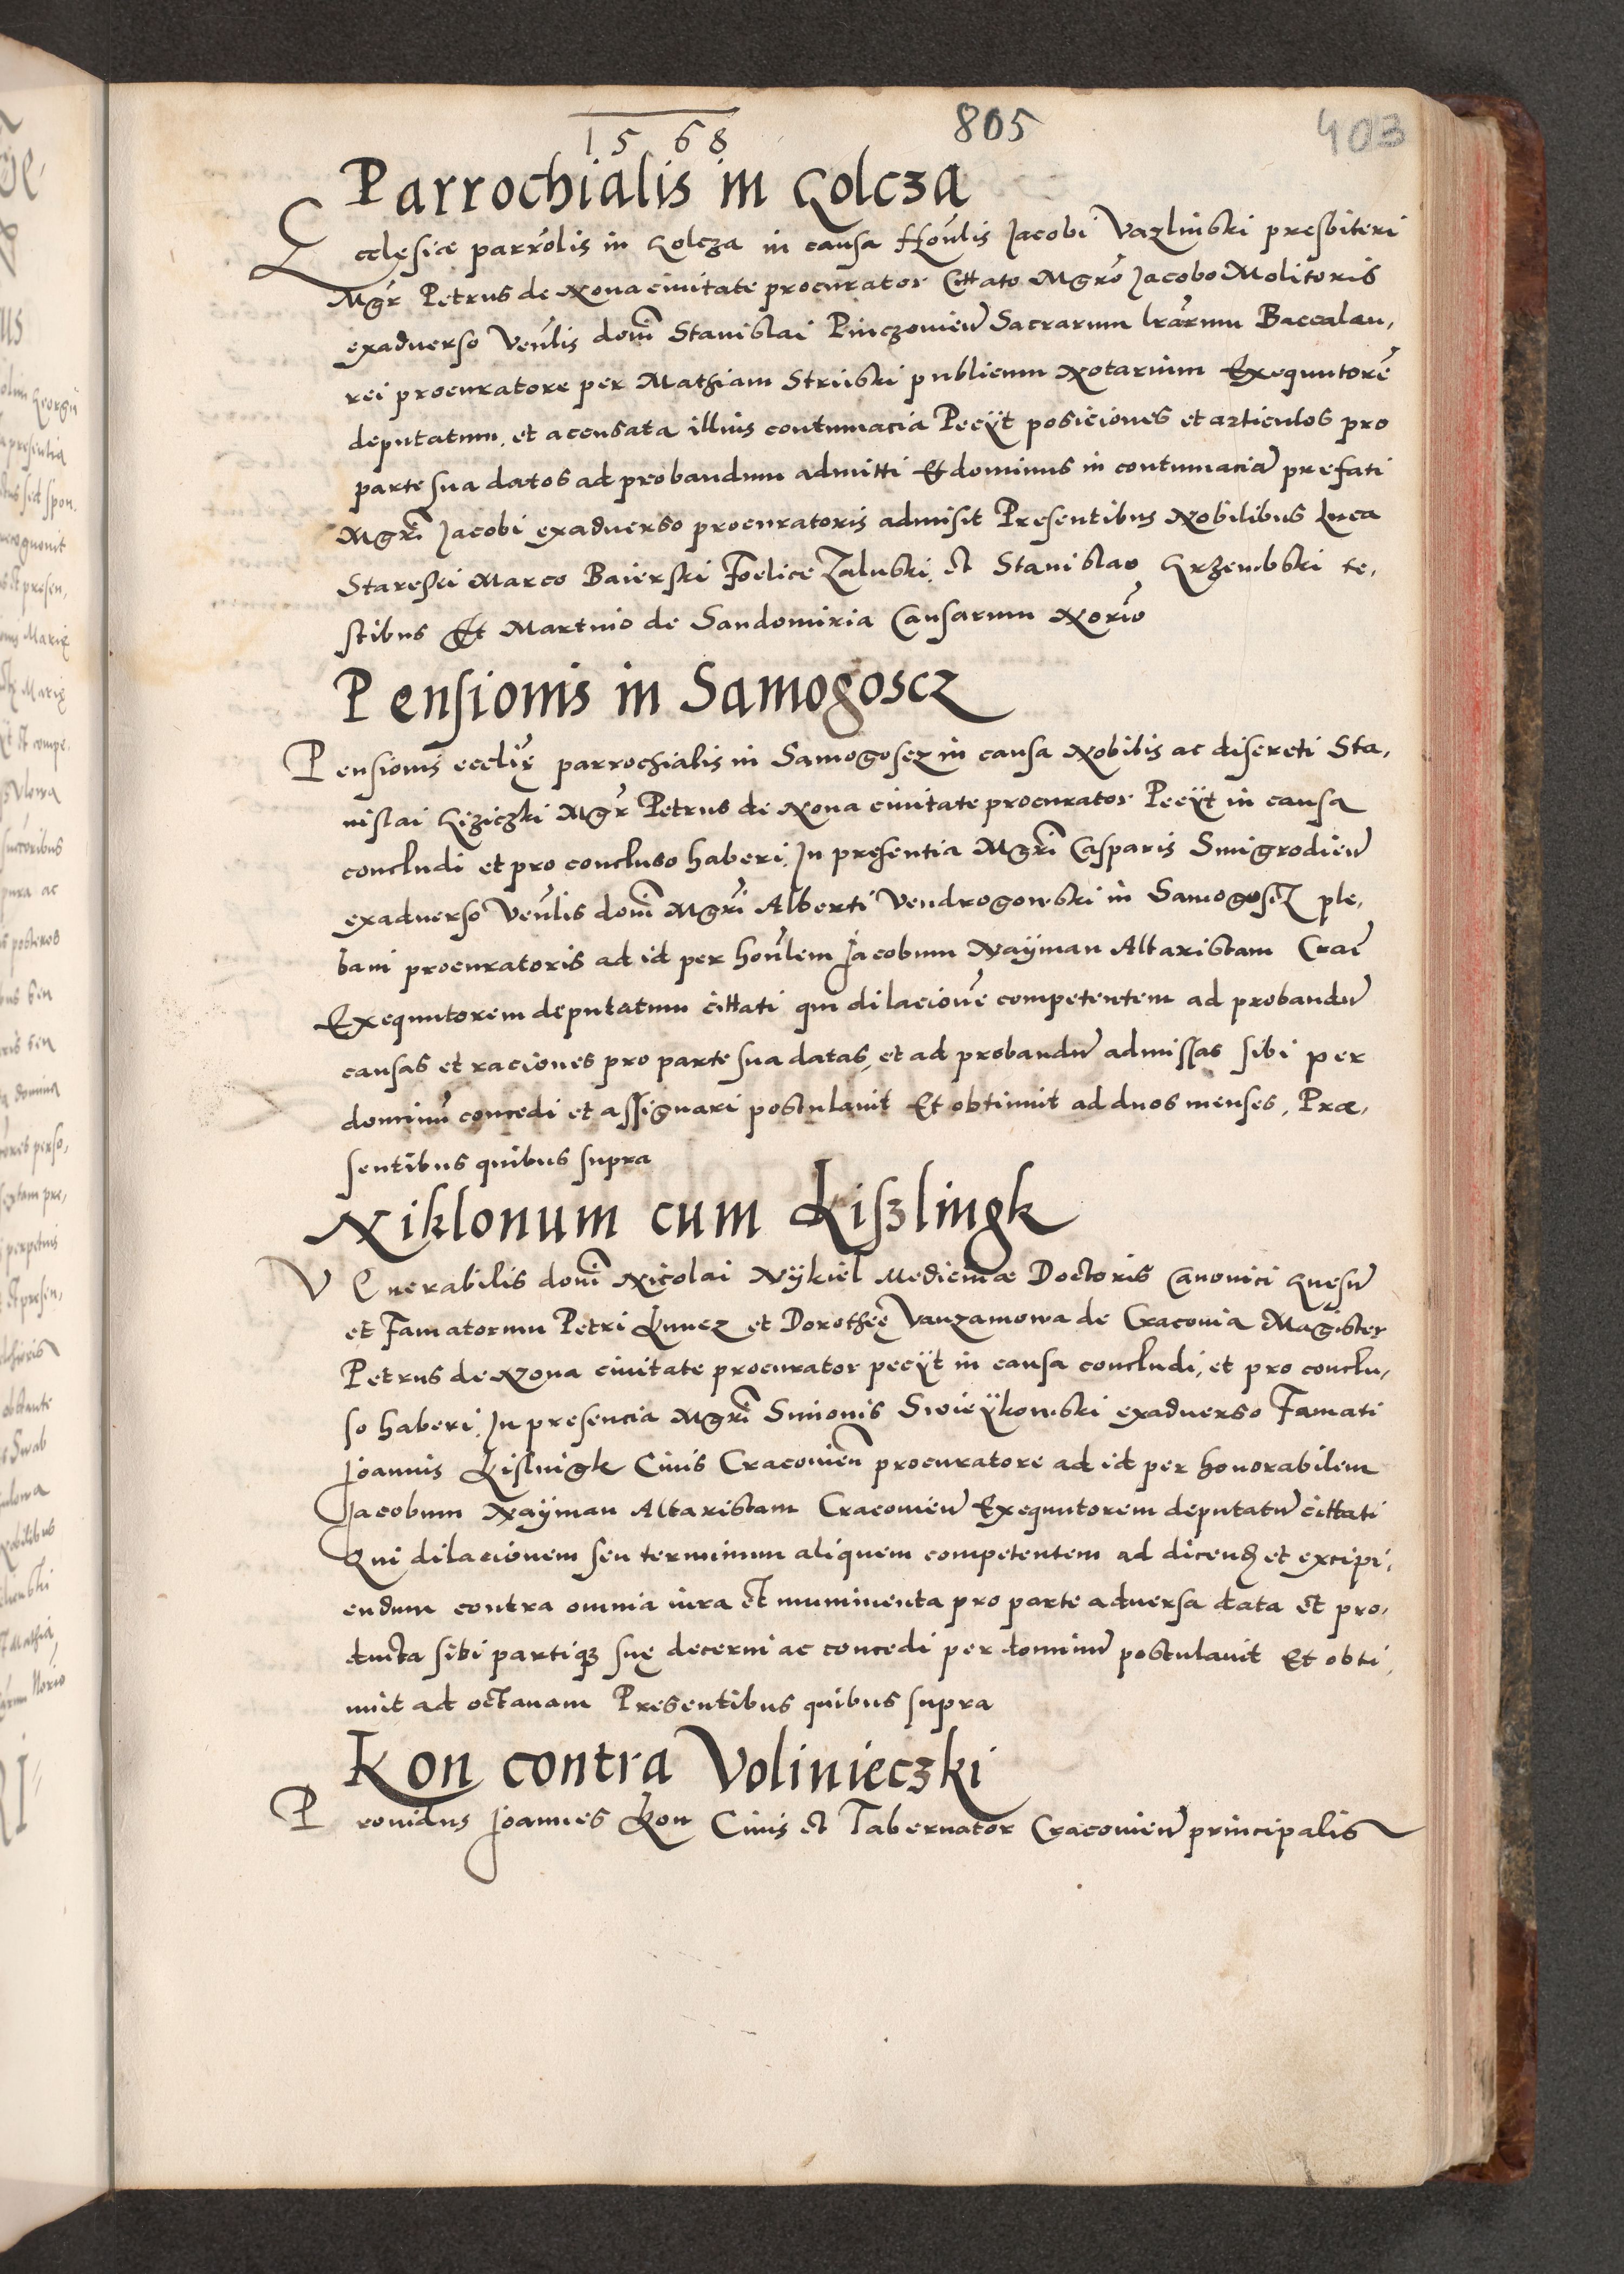 1568
805
403
Parrochialis in Golcza
Ecclesiæ parrolis in Golcza in causa Honlis Jacobi Vazlinski presbiteri
Mgr Petrus de Nova civitate procurator Cittato Mgro Jacobo Molitoris
exadverso Venlis domi Stanislai Pinczovien Sacrarum lrarum Baccalau,
rei procuratore per Mathiam Striiski publicum Notarium Exequutore
deputatum, et accusata illius contumacia Peciit posiciones et articulos pro
parte sua datos ad probandum admitti Et dominus in contumacia prefati
Mgri Jacobi exadverso procuratoris admisit Presentibus Nobilibus Luca
Stareski Marco Baierski Foelice Zaluski et Stanislao Grzembski te,
stibus Et Martino de Sandomiria Causarum Norio
Pensionis in Samogoscz
Pensionis ecclię parrochialis in Samogoscz in causa Nobilis ac discreti Sta,
nislai Giziczki Mgr Petrus de Nova civitate procurator Peciit in causa
concludi et pro concluso haberi, In presentia Mgri Casparis Smigrodien
exadverso Venlis domi Mgri Alberti Vendrogowski in Samogoscz ple,
bani procuratoris ad id per honlem Jacobum Naÿman Altaristam Crac
Exequutorem deputatum cittati qui dilacione competentem ad probandu
causas et raciones pro parte sua datas, et ad probandu admissas sibi per
dominu concedi et assignari postulavit Et obtinuit ad duos menses, Præ,
sentibus quibus supra
Niklonum cum Kiszlingk
VEnerabilis domi Nicolai Nÿkiel Medicinæ Doctoris Canonici Gnesn
et Famatorum Petri Kuncz et Dorotheę Vanzamowa de Cracovia Magister
Petrus de Nova civitate procurator peciit in causa concludi, et pro conclu,
so haberi, In presencia Mgri Simonis Swieÿkowski exadverso Famati
Joannis Kislingk Civis Cracovien procuratore ad id per honorabilem
Jacobum Naÿman Altaristam Cracovien Exequutorem deputatu cittati
Qui dilacionem seu terminum aliquem competentem ad dicend et excipi,
endum contra omnia iura et munimenta pro parte adversa data et pro,
ducta sibi partiq suę decerni ac concedi per dominu postulavit Et obti,
nuit ad octavam Presentibus quibus supra
Kon contra Volinieczki
Providus Joannes Kon Civis et Tabernator Cracovien principalis